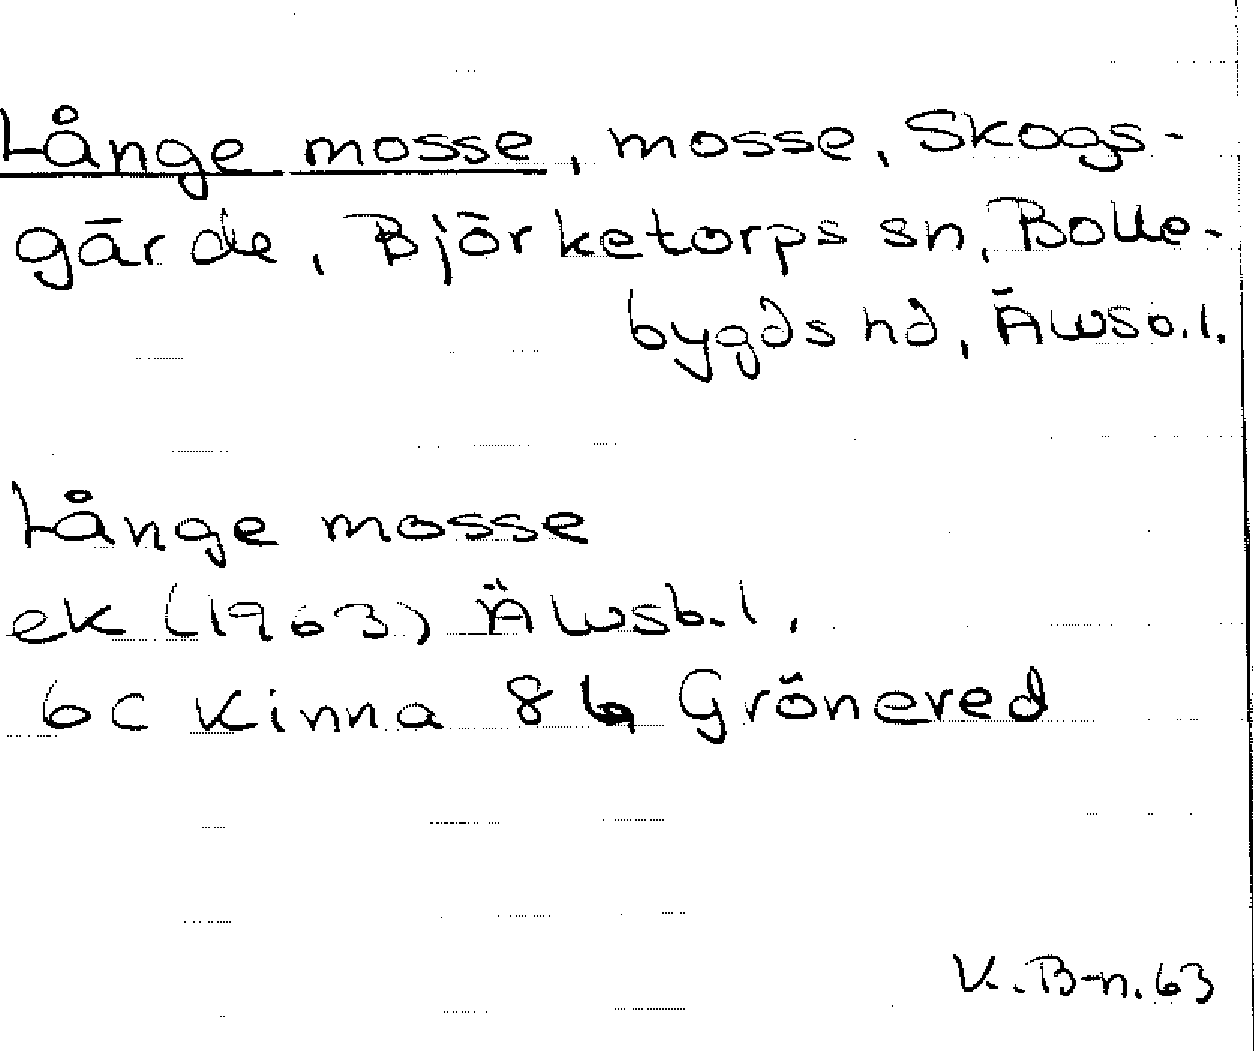 Långe mosse, mosse, Skogs-
gärde, Björketorps sn, Bolle-
bygds hd, Älvsb.l.
Långe mosse
ek (1963) Älvsb.l.
6c Kinna 8 Grönered
V.B-n. 63